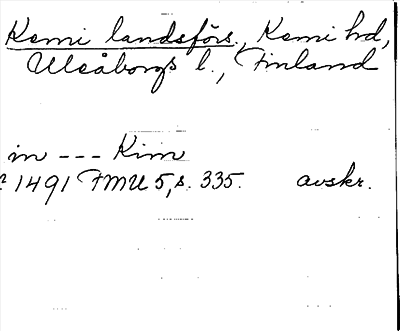 Kemi landsförs., Kemi hd,
Uleåborgs l., Finland
in --- Kim
1491 FMU 5, s. 335. avskr.